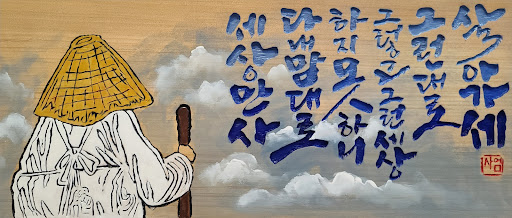 세상만사
다내맘대로
하지못하니
그렇고그런세상
그런대로
살아가세